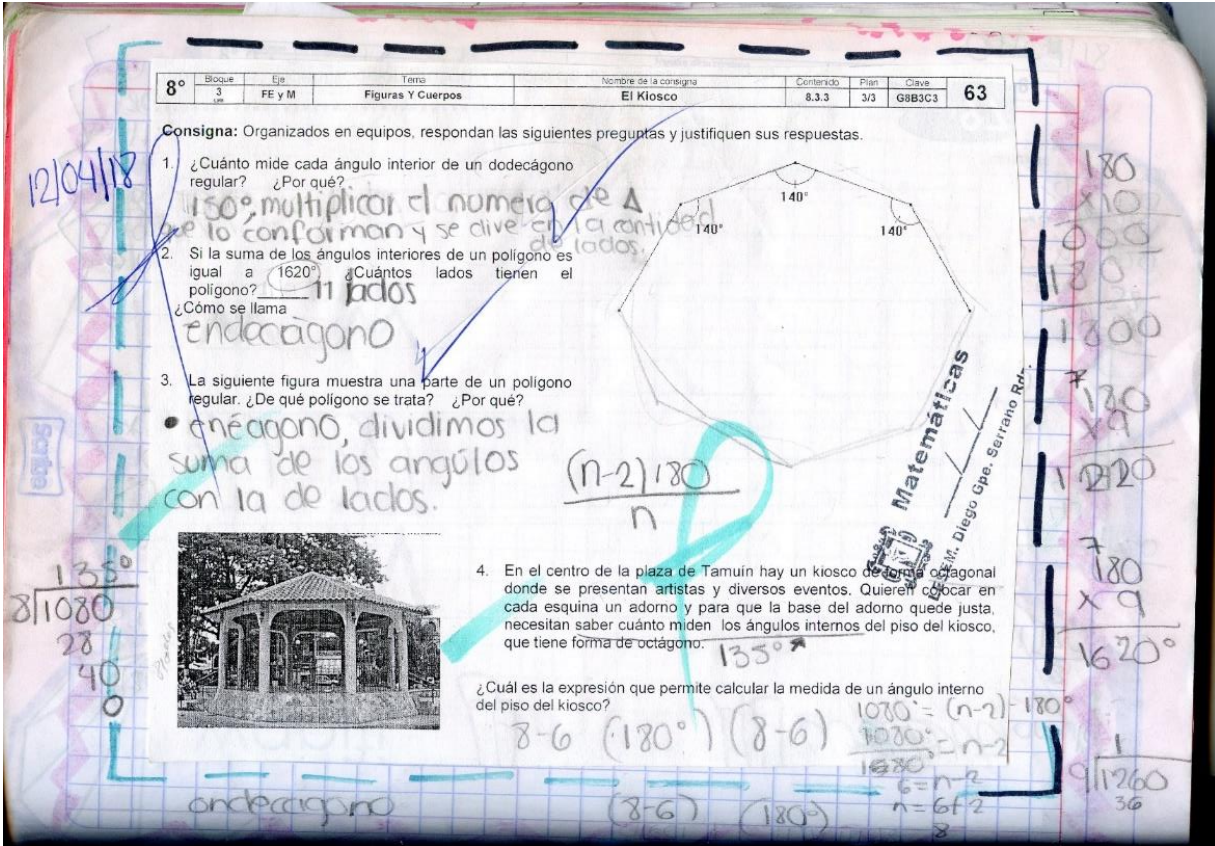 8° Bloque 3 Eje FE y M Tema Figuras Y Cuerpos Nombre de la consigna El Kiosco Contenido 8.3.3 Plan 3/3 Clave G8B3C3 63
Consigna: Organizados en equipos, respondan las siguientes preguntas y justifiquen sus respuestas.
12/04/18
1. ¿Cuánto mide cada ángulo interior de un dodecágono
regular? ¿Por qué?
150°, multiplicar el numero de Δ
que lo conforman y se dive en la cantidad
de lados.
2. Si la suma de los ángulos interiores de un polígono es
igual a 1620° ¿Cuántos lados tienen el
polígono? 11 lados
¿Cómo se llama
endecágono
3. La siguiente figura muestra una parte de un polígono
regular. ¿De qué polígono se trata? ¿Por qué?
• enéagono, dividimos la
suma de los angúlos
con la de lados.
140°
140°
140°
(n-2)180
n
Matemáticas
Diego Gpe. Serrano Rdz.
4. En el centro de la plaza de Tamuín hay un kiosco de forma octagonal
donde se presentan artistas y diversos eventos. Quieren colocar en
cada esquina un adorno y para que la base del adorno quede justa,
necesitan saber cuánto miden los ángulos internos del piso del kiosco,
que tiene forma de octágono. 135°
¿Cuál es la expresión que permite calcular la medida de un ángulo interno
del piso del kiosco?
8-6 (180°) (8-6)
1080° = (n-2)-180°
1080° = n-2
180°
6=n-2
n=6+2
8
ondecagono
(8-6) (180°)
135°
8 1080
28
40
0
180
x10
000
180
1800
7
180
x9
1220
7
180
x 9
1620°
1
9 1260
36
Scribe